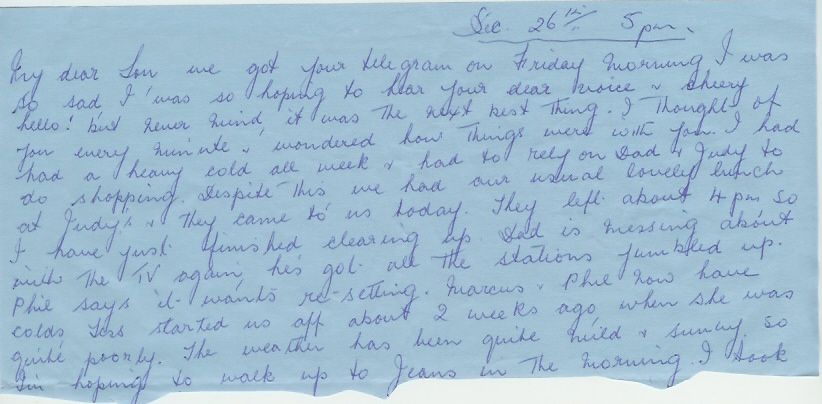 Dec. 26th 5pm.
My dear Son we got your telegram on Friday morning I was
so sad I was so hoping to hear your dear voice & cheery
hello! but never mind it was the next best thing. I thought of
you every minute & wondered how things were with you. I had
had a heavy cold all week & had to rely on Dad & Judy to
do shopping. Despite this we had our usual lovely lunch
at Judy's & they came to us today. They left about 4 pm so
I have just finished clearing up. Dad is messing about
with the TV again, he's got all the stations jumbled up.
Phil says it wants re-setting. Marcus & Phil now have
colds Tess started us off about 2 weeks ago when she was
quite poorly. The weather has been quite mild & sunny so
I'm hoping to walk up to Jeans in the morning. I took